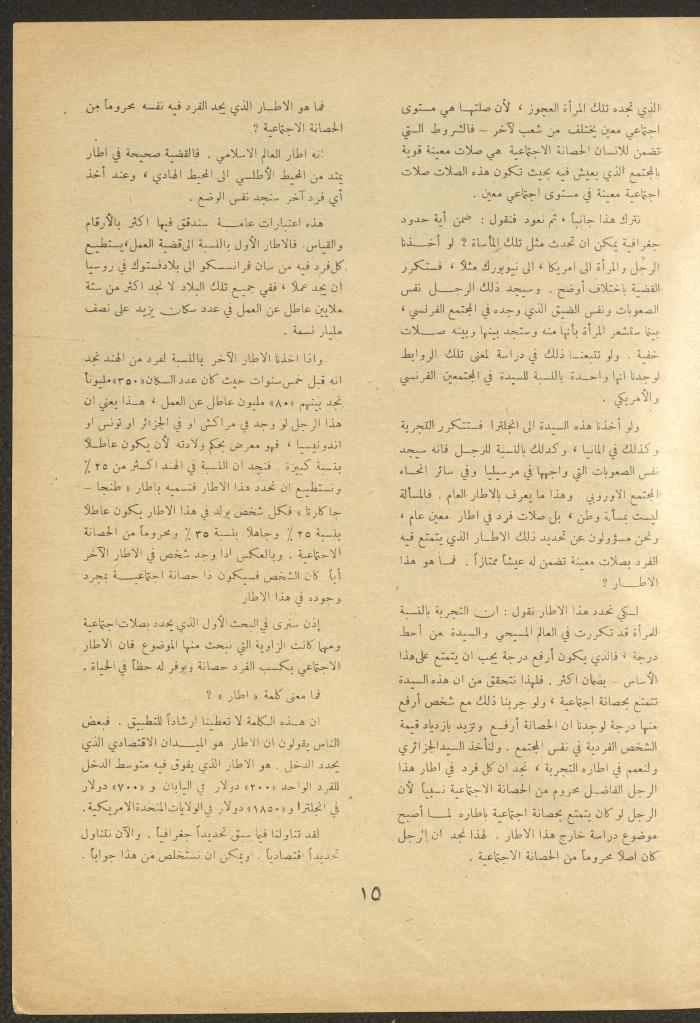 الذي تجده تلك المرأة العجوز ، لأن صلتها هي مستوى
اجتماعي معين يختلف من شعب لآخر – فالشروط التي
تضمن للانسان الحصانة الاجتماعية هي صلات معينة قوية
بالمجتمع الذي يعيش فيه بحيث تكون هذه الصلات صلات
اجتماعية معينة في مستوى اجتماعي معين .
نترك هذا جانباً ، ثم نعود فنقول : ضمن أية حدود
جغرافية يمكن ان تحدث مثل تلك المأساة ؟ لو أخذنا
الرجل والمرأة الى امريكا ، الى نيويورك مثلاً ، فستكرر
القضية باختلاف أوضح . وسيجد ذلك الرجل نفس
الصعوبات ونفس الضيق الذي وجده في المجتمع الفرنسي ،
بينما ستشعر المرأة بأنها منه وستجد بينها وبينه صلات
خفية . ولو تتبعنا ذلك في دراسة لمعنى تلك الروابط
لوجدنا انها واحدة بالنسبة للسيدة في المجتمعين الفرنسي
والأمريكي .
ولو أخذنا هذه السيدة الى انجلترا فستتكرر التجربة
وكذلك في المانيا ، وكدلك بالنسبة للرجل فانه سيجد
نفس الصعوبات التي واجهها في مرسيليا وفي سائر انحاء
المجتمع الاوروبي . وهذا ما يعرف بالاطار العام . فالمسألة
ليست بمسألة وطن ، بل صلات فرد في اطار معين عام ،
ونحن مسؤولون عن تحديد ذلك الاطار الذي يتمتع فيه
الفرد بصلات معينة تضمن له عيشاً ممتازاً . فما هو هذا
الاطار ؟
لكي نحدد هذا الاطار نقول : ان التجربة بالنسبة
للمرأة قد تكررت في العالم المسيحي والسيدة من أحط
درجة ، فالذي يكون أرفع درجة يجب ان يتمتع على هذا
الأساس – بضمان اكثر . فلهذا نتحقق من ان هذه السيدة
تتمتع بحصانة اجتماعية ، ولو جربنا ذلك مع شخص أرفع
منها درجة لوجدنا ان الحصانة أرفع وتزيد بازدياد قيمة
الشخص الفردية في نفس المجتمع . ولنأخذ السيد الجزائري
ولنعمم في اطاره التجربة ، نجد ان كل فرد في اطار هذا
الرجل الفاضل محروم من الحصانة الاجتماعية نسبياً لأن
الرجل لو كان يتمتع بحصانة اجتماعية باطاره لما أصبح
موضوع دراسة خارج هذا الاطار . لهذا نجد ان الرجل
كان اصلاً محروماً من الحصانة الاجتماعية .
فما هو الاطار الذي يجد الفرد فيه نفسه محروماً من
الحصانة الاجتماعية ؟
انه اطار العالم الاسلامي . فالقضية صحيحة في اطار
يمتد من المحيط الأطلسي الى المحيط الهادي ، وعند أخذ
أي فرد آخر سنجد نفس الوضع .
هذه اعتبارات عامة سندقق فيها اكثر بالأرقام
والقياس . فالاطار الأول بالنسبة الى قضية العمل ، يستطيع
كل فرد فيه من سان فرانسسكو الى بلادفستوك في روسيا
ان يجد عملاً ، ففي جميع تلك البلاد لا نجد اكثر من ستة
ملايين عاطل عن العمل في عدد سكان يزيد على نصف
مليار نسمة .
واذا اخذنا الاطار الآخر بالنسبة لفرد من الهند نجد
انه قبل خمس سنوات حيث كان عدد السكان «٣٥٠» مليوناً
نجد بينهم «٨٠» مليون عاطل عن العمل ، هذا يعني ان
هذا الرجل لو وجد في مراكش او في الجزائر او تونس او
اندونيسيا ، فهو معرض بحكم ولادته لأن يكون عاطلاً
بنسبة كبيرة . فنجد ان النسبة في الهند اكثر من ٢٥ ٪
ونستطيع ان نحدد هذا الاطار فنسميه باطار « طنجا –
جاكارتا » فكل شخص يولد في هذا الاطار يكون عاطلاً
بنسبة ٢٥ ٪ وجاهلاً بنسبة ٣٥ ٪ ومحروماً من الحصانة
الاجتماعية . وبالعكس اذا وجد شخص في الاطار الآخر
أياً كان الشخص فسيكون ذا حصانة اجتماعية بمجرد
وجوده في هذا الاطار
إذن سنرى في البحث الأول الذي يحدد بصلات اجتماعية
ومهما كانت الزاوية التي نبحث منها الموضوع فان الاطار
الاجتماعي يكسب الفرد حصانة ويوفر له حظاً في الحياة .
فما معنى كلمة « اطار » ؟
ان هذه الكلمة لا تعطينا ارشاداً للتطبيق . فبعض
الناس يقولون ان الاطار هو الميدان الاقتصادي الذي
يحدد الدخل . هو الاطار الذي يفوق فيه متوسط الدخل
للفرد الواحد «٢٠٠» دولار في اليابان و «٧٠٠» دولار
في انجلترا و «١٨٥٠» دولار في الولايات المتحدة الامريكية .
لقد تناولنا فيما سبق تحديداً جغرافياً . والآن نتناول
تحديداً اقتصادياً . ويمكن ان نستخلص من هذا جواباً .
١٥